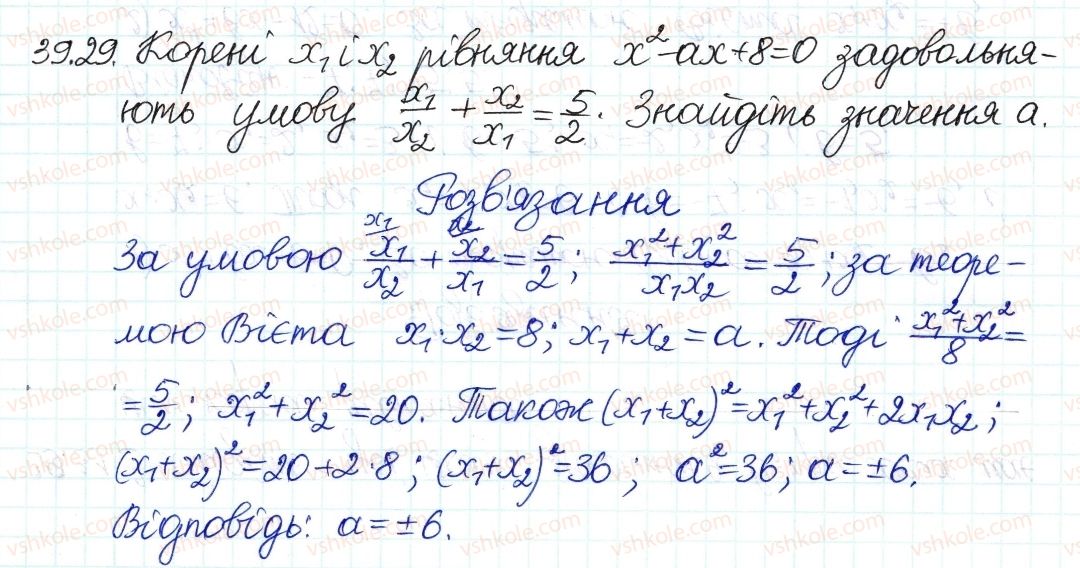 39.29. Корені x₁ і x₂ рівняння x²-ax+8=0 задовольня-
ють умову x₁/x₂ + x₂/x₁ = 5/2. Знайдіть значення a.
Розв'язання
За умовою x₁/x₂ + x₂/x₁ = 5/2; (x₁²+x₂²)/(x₁x₂) = 5/2; за теоре-
мою Вієта x₁·x₂=8; x₁+x₂=a. Тоді (x₁²+x₂²)/8 =
= 5/2; x₁²+x₂²=20. Також (x₁+x₂)²=x₁²+x₂²+2x₁x₂;
(x₁+x₂)²=20+2·8; (x₁+x₂)²=36; a²=36; a=±6.
Відповідь: a=±6.